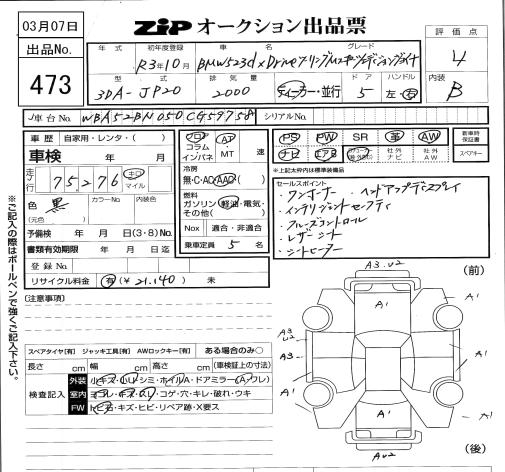 03月07日
ZIP オークション出品票
出品No.
473
評価点
4
内装
B
年式
初年度登録
車名
グレード
R3年10月
BMW523d xDrive ツーリングMスポーツエディションジョイ+
型式
排気量
ドア
ハンドル
3DA-JP20
2000
ディーラー・並行
5
左・右
車台No.
WBA52BN050CG59758
シリアルNo.
車歴
自家用・レンタ・( )
車検
年 月
走行
75,276
キロ
マイル
色
黒
(元色)
カラーNo.
内装色
予備検 年 月 日(3・8)No.
書類有効期限 年 月 日迄
登録No.
リサイクル料金
有(¥21,140) 未
フロア
コラム
インパネ
AT
MT
速
冷房
無・C・AC・AAC
燃料
ガソリン・軽油・電気・
その他( )
Nox
適合・非適合
乗車定員 5 名
PS
PW
SR
革
AW
ナビ
エアB
社外
ナビ
社外
AW
新車時
保証書
スペアキー
*上記太枠内は標準装備品
セールスポイント
・ワンオーナー ・ヘッドアップディスプレイ
・インテリジェントセーフティ
・クルーズコントロール
・レザーシート
・シートヒーター
※ご記入の際はボールペンで強くご記入下さい。
(注意事項)
スペアタイヤ[有] ジャッキ工具[有] AWロックキー[有] ある場合のみ○
長さ cm 幅 cm 高さ cm (車検証上の寸法)
検査記入
外装
小キズ・小凹・シミ・ホイルA・ドアミラー(A・ワレ)
室内
ヨゴレ・キズ・スレ・コゲ・穴・キレ・破れ・ウキ
FW
トビ石・キズ・ヒビ・リペア跡・X要ス
(前)
A3.U2
A1
A1
A1
A3
U2
A3
A1
A1
A1
A1
A1
AU2
(後)